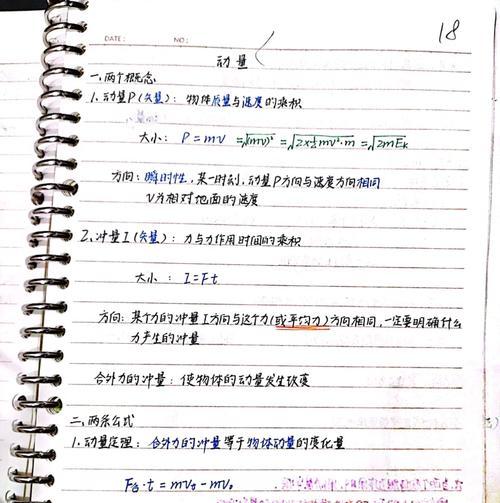 18
DATE: NO:
动量
一、两个概念
1. 动量P(矢量): 物体质量与速度的乘积
大小: P=mv=√(mv)²=√2×½mv²·m=√2mEk
方向: 瞬时性, 某一时刻, 动量P方向与速度方向相同
V为相对地面的速度
2. 冲量I(矢量): 力与力作用时间的乘积
大小: I=Ft
方向: 某个力的冲量I方向与这个力(或平均力)方向相同, 一定要明确什么
力产生的冲量
合外力的冲量: 使物体的动量发生改变
二、两条公式
1. 动量定理: 合外力的冲量等于物体动量的变化量
F合·t=mvt-mv₀